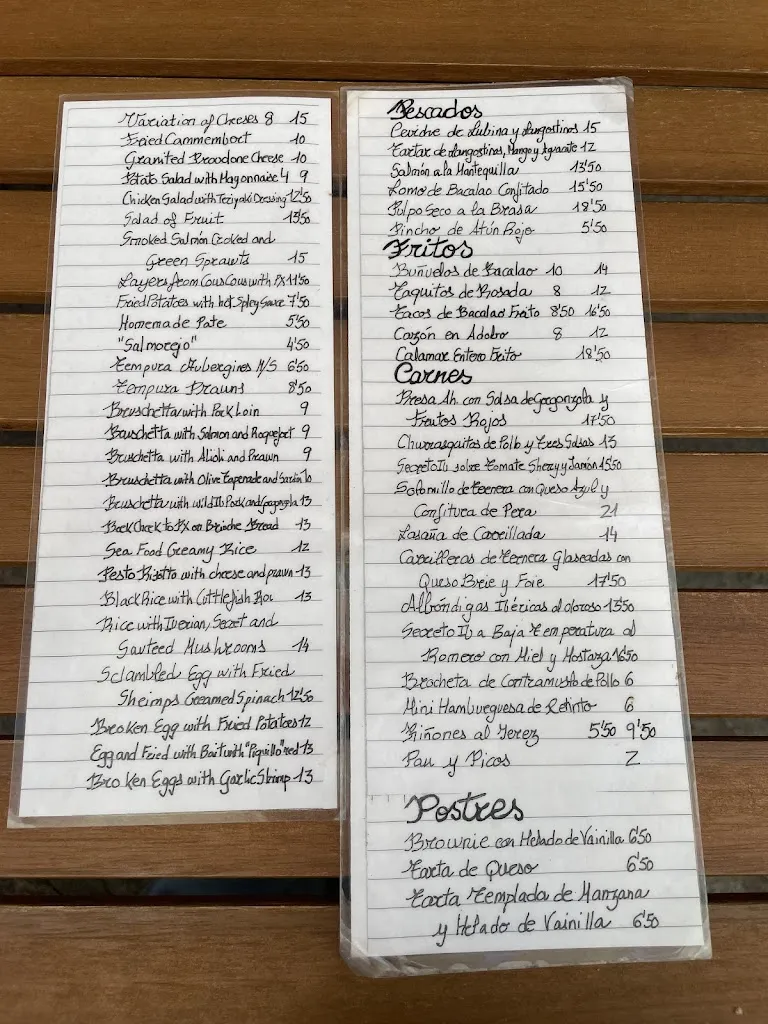 Variation of Cheeses 8 15
Fried Cammembort 10
Granited Proodone Cheese 10
Potato Salad with Mayonnaise 4 9
Chicken Salad with Teriyaki Dressing 12'50
Salad of Fruit 13'50
Smoked Salmón Cooked and
Green Sprawts 15
Layers from Cous Cous with PX 11'50
Fried Potatoes with hot Spicy Sauce 7'50
Homemade Pate 5'50
"Salmorejo" 4'50
Tempura Aubergines M/S 6'50
Tempura Prawns 8'50
Bruschetta with Pork Loin 9
Bruschetta with Salmon and Roquefort 9
Bruschetta with Alioli and Prawn 9
Bruschetta with Olive Tapenade and Sardin 10
Bruschetta with wild Ib Pork and Gorgonzola 13
Beek Cheek to PX on Brioche Bread 13
Sea Food Creamy Rice 12
Pesto Risotto with cheese and prawn 13
Black Rice with Cuttlefish 13
Rice with Iverian, Secret and
Sauteed Mushrooms 14
Sclambled Egg with Fried
Sheimps Creamed Spinach 12'50
Broken Egg with Fried Potatoes 12
Egg and Fried with Bait with "Piquillo" red 13
Broken Eggs with Garlic Shrimp 13
Pescados
Ceviche de Lubina y Langostinos 15
Tartar de Langostinos, Mango y Aguacate 12
Salmón a la Mantequilla 13'50
Lomo de Bacalao Confitado 15'50
Pulpo Seco a la Brasa 18'50
Pincho de Atún Rojo 5'50
Fritos
Buñuelos de Bacalao 10 14
Taquitos de Rosada 8 12
Tacos de Bacalao Frito 8'50 16'50
Cazón en Adobo 8 12
Calamar Entero Frito 18'50
Carnes
Presa Ib. con Salsa de Gorgonzola y
Frutos Rojos 17'50
Churrasquitos de Pollo y Tres Salsas 13
Secreto Ib sobre Tomate Sherry y Jamón 15'50
Solomillo de Ternera con Queso Azul y
Confitura de Pera 21
Lasaña de Carrillada 14
Carrilleras de Ternera Glaseadas con
Queso Brie y Foie 17'50
Albóndigas Ibéricas al oloroso 13'50
Secreto Ib a Baja Temperatura al
Romero con Miel y Mostaza 16'50
Brocheta de Contramuslo de Pollo 6
Mini Hamburguesa de Retinto 6
Riñones al Jerez 5'50 9'50
Pan y Picos 2
Postres
Brownie con Helado de Vainilla 6'50
Tarta de Queso 6'50
Tarta Templada de Manzana
y Helado de Vainilla 6'50